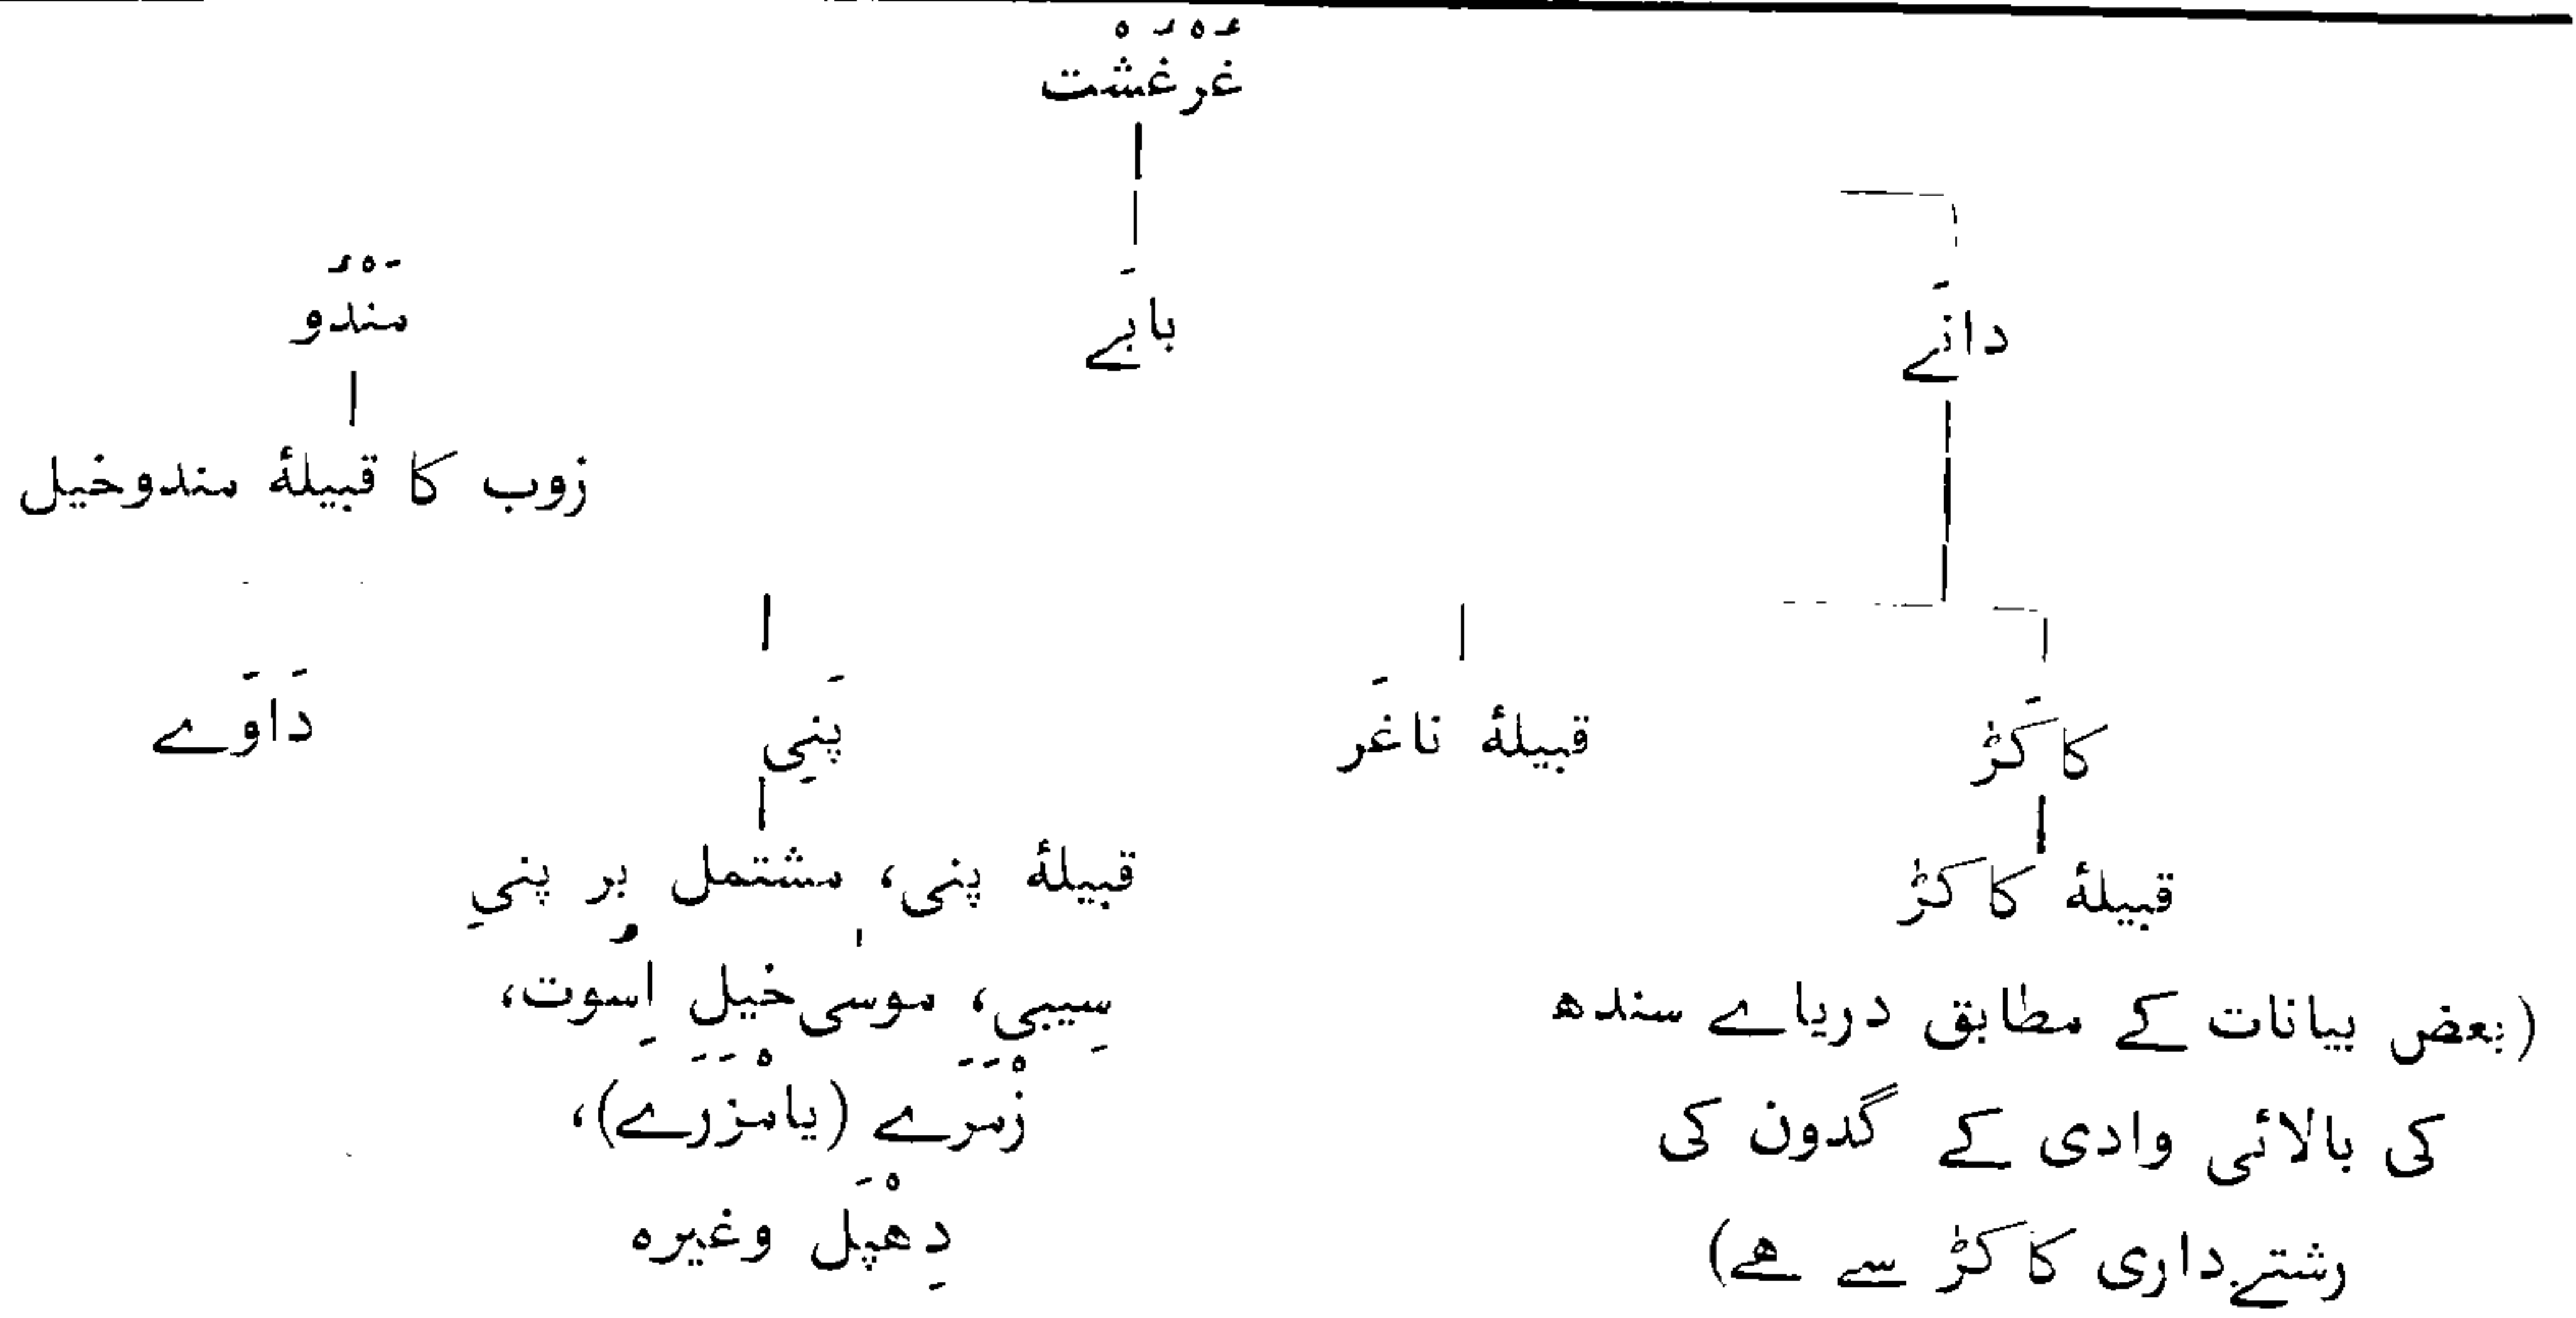 غُرْغُشْت
دانَے
بابَے
مَنْدُو
زوب کا قبیلۂ مندوخیل
کاکَڑ
قبیلۂ ناغَر
پَنِی
دَاوَے
قبیلۂ کاکڑ
(بعض بیانات کے مطابق دریاے سندھ
کی بالائی وادی کے گدون کی
رشتےداری کاکڑ سے ھے)
قبیلۂ پنی، مشتمل بر پنیِ
سِیبی، موسٰی خیل اِسُوت،
زْمَرَے (یامْزَرَے)،
دِھْپَل وغیرہ